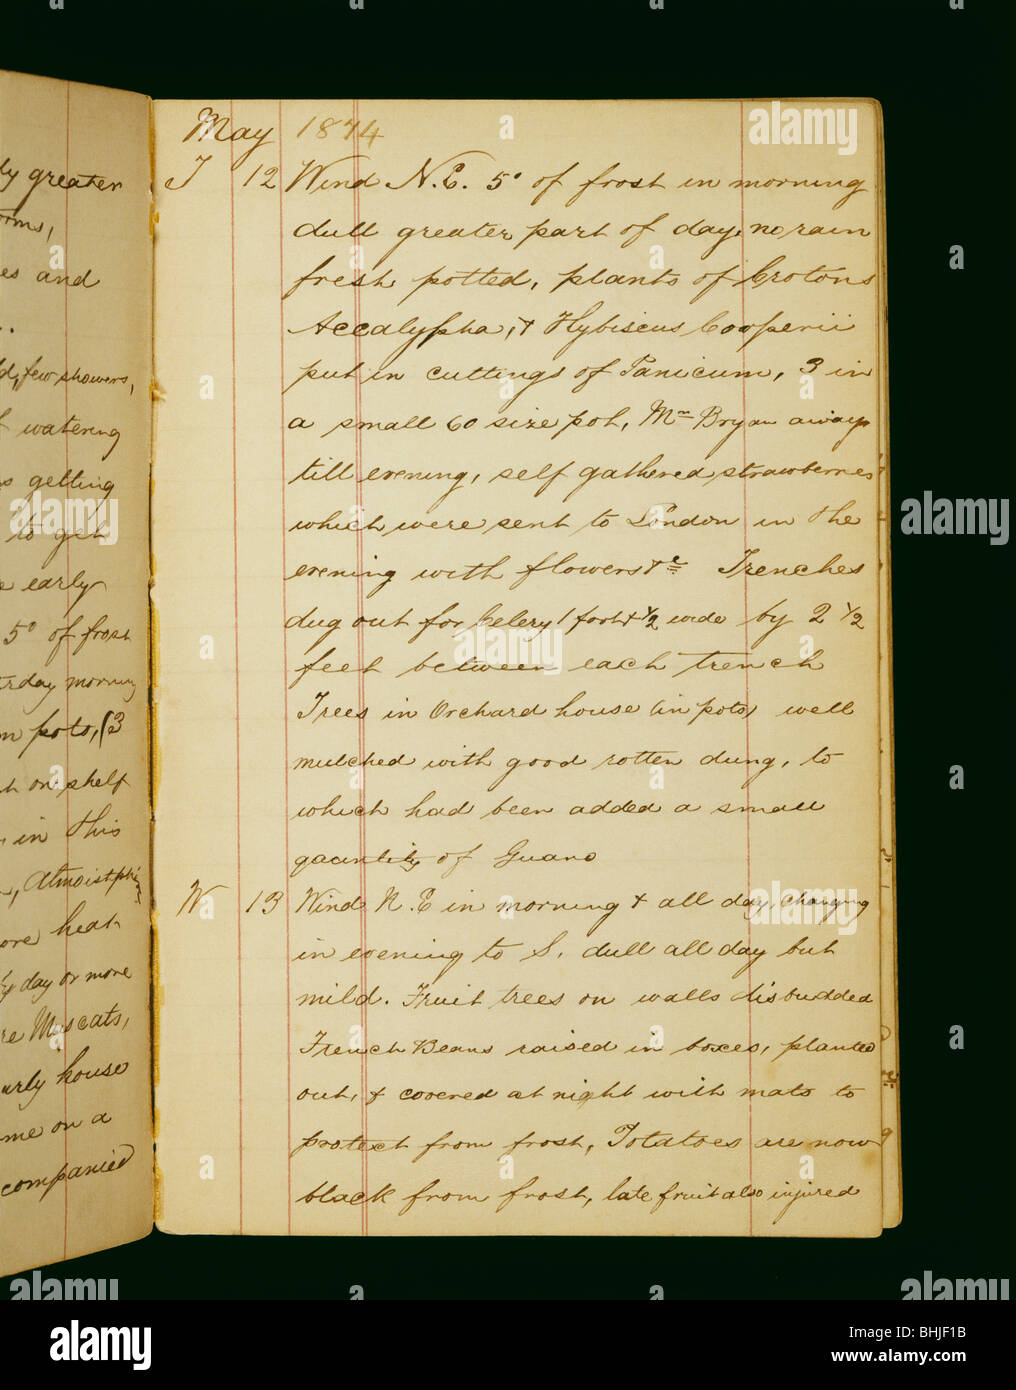 ly greater
orms,
es and
d, few showers,
f watering
s getting
to get
e early
5° of frost
rday morning
m pots, (3
on shelf
in this
ore heat
day or more
re Muscats,
arly house
me on a
companied
May 1874
T 12 Wind N.E. 5° of frost in morning
dull greater part of day, no rain
fresh potted, plants of Crotons
Accalypha, & Hybiscus Cooperii
put in cuttings of Panicum, 3 in
a small 60 size pot, Mr Bryan away
till evening, self gathered strawberries
which were sent to London in the
evening with flowers &c Trenches
dug out for Celery 1 foot & 1/2 wide by 2 1/2
feet between each trench
Trees in Orchard house (in pots) well
mulched with good rotten dung, to
which had been added a small
qauntity of Guano
W 13 Wind N.E in morning & all day, changing
in evening to S. dull all day but
mild. Fruit trees on walls disbudded
French Beans raised in boxes, planted
out, & covered at night with mats to
protect from frost, Potatoes are now
black from frost, late fruit also injured
alamy
alamy
Image ID: BHJF1B
www.alamy.com